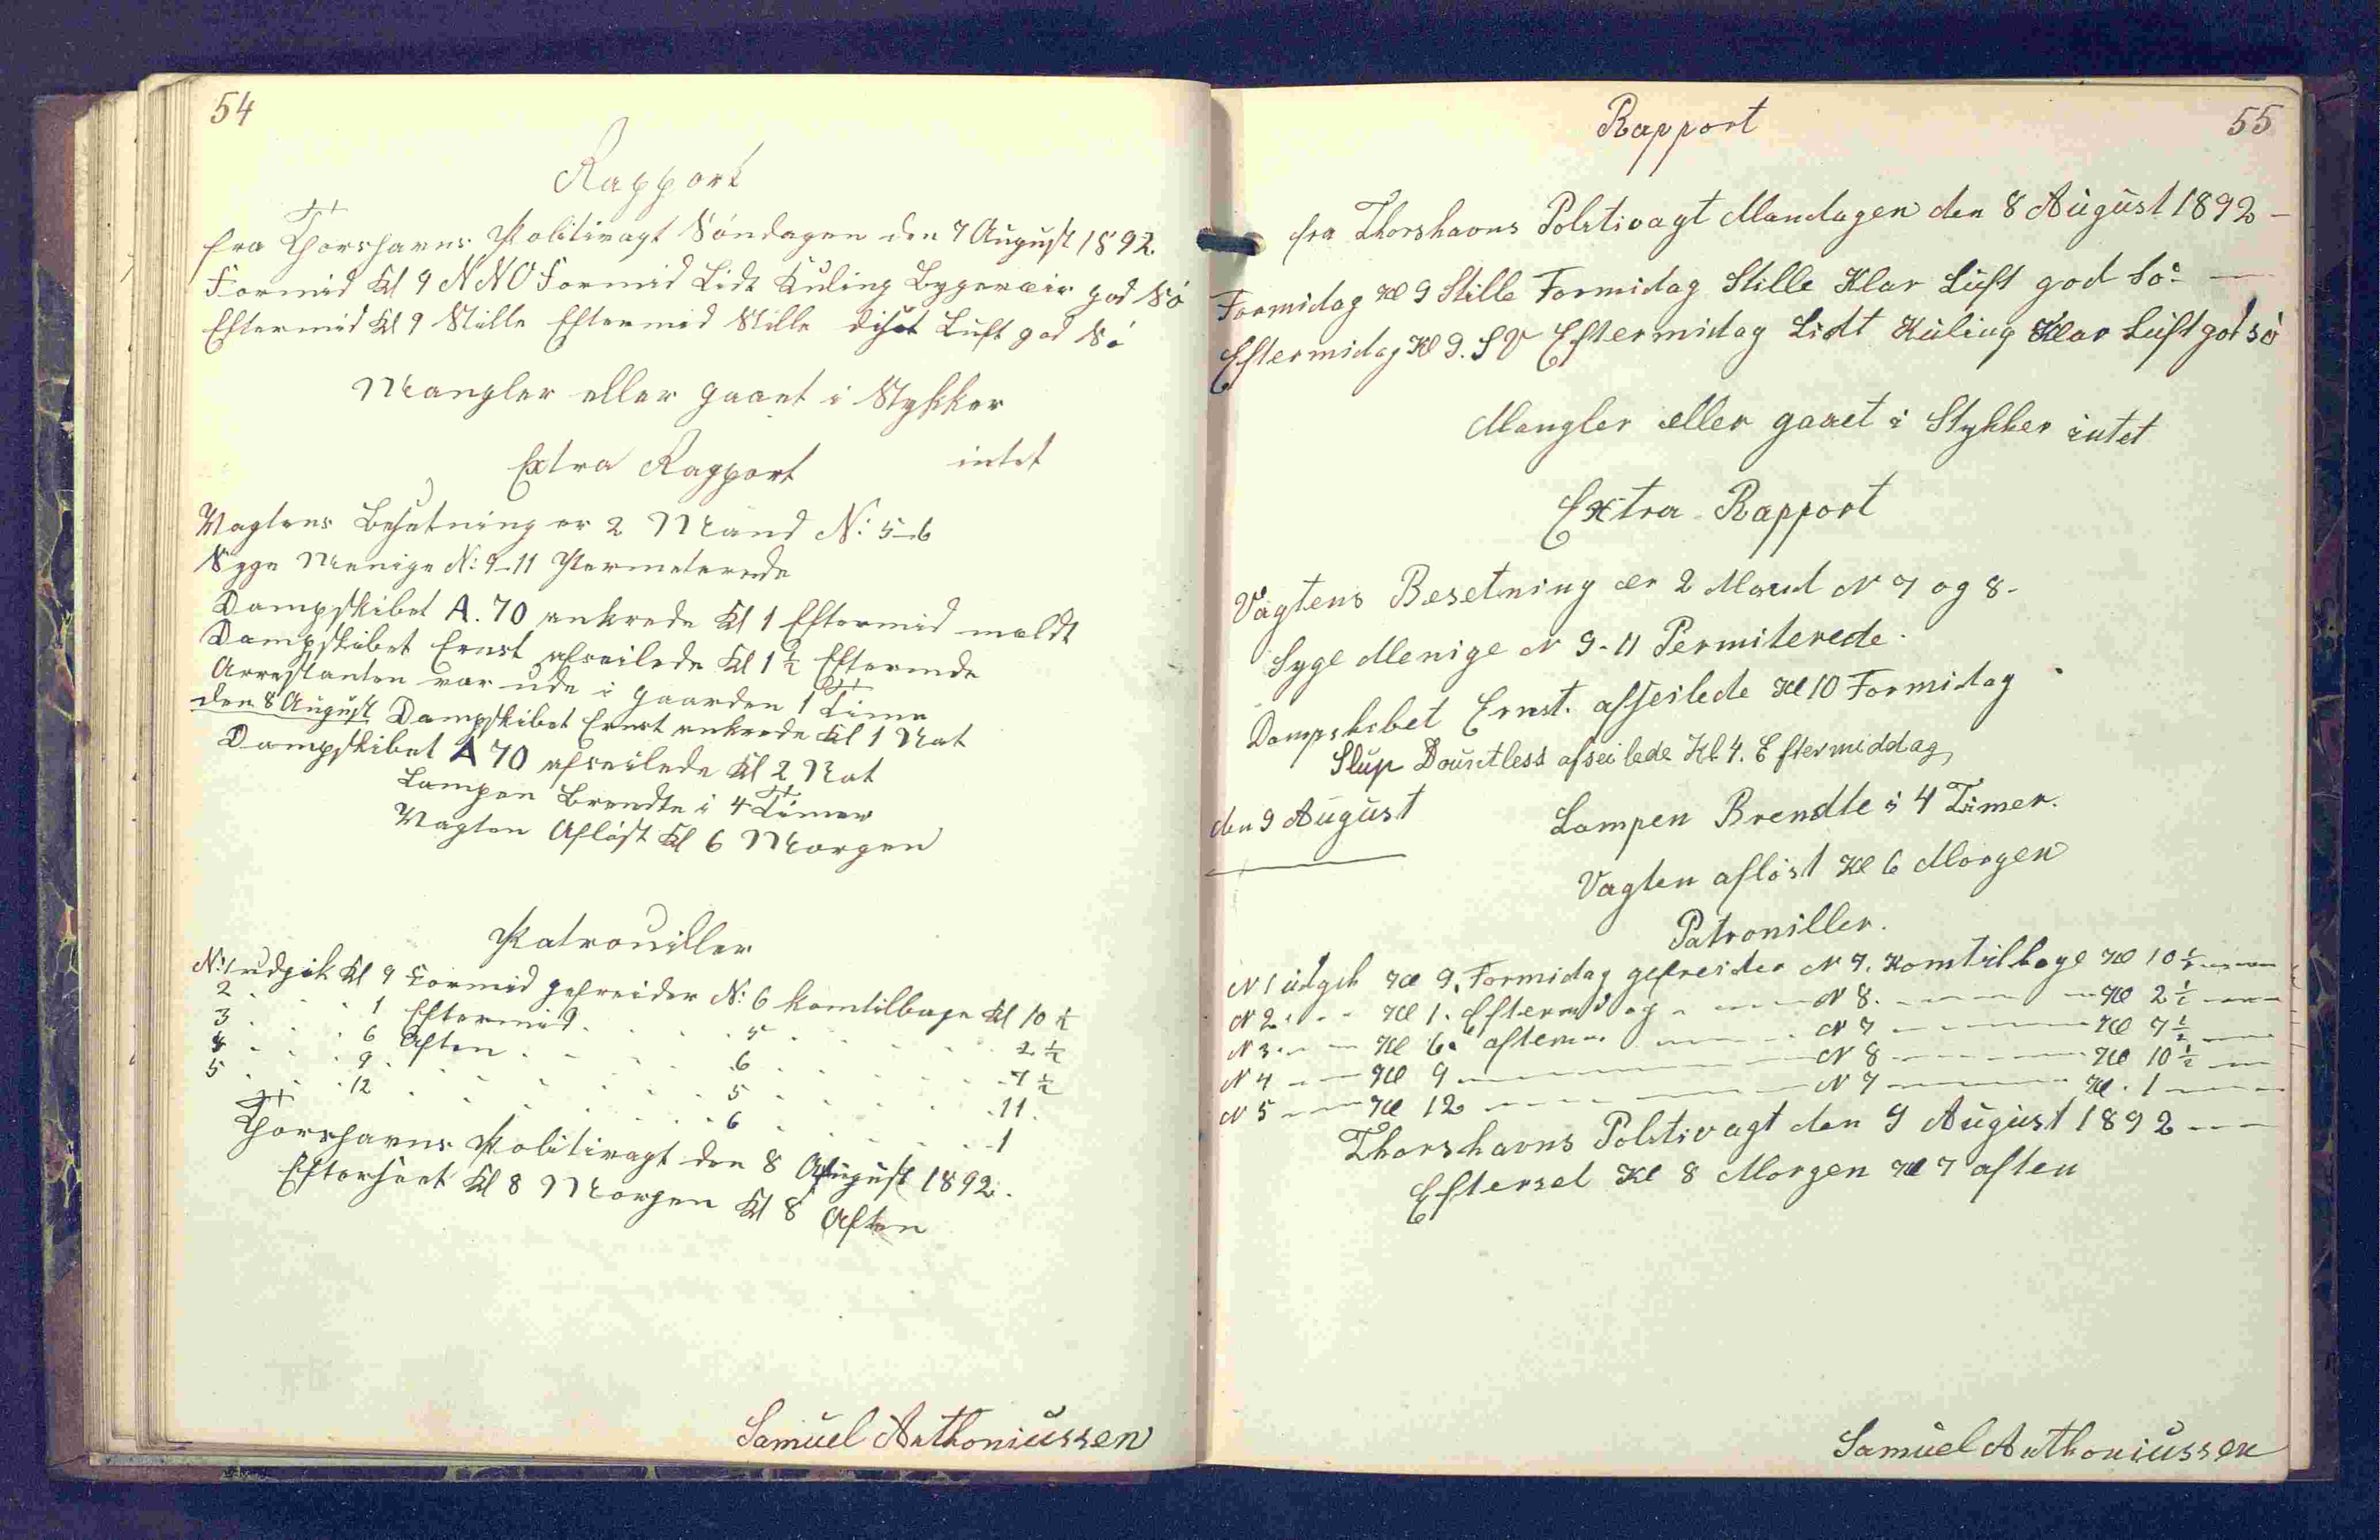 54
Rapport
fra Thorshavns Politivagt Søndagen den 7 August 1892.
Formid Kl 9 NNO Formid Lidt Kuling Bygeveir god Sö
Eftermid Kl 9 Stille Eftermid Stille diset Luft god Sö
Mangler eller gaaet i Stykker
intet
Extra Rapport
Vagtens Besetning er 2 Mand N: 5-6
Syge Menige N: 9-11 Permeterede
Dampskibet A. 70 ankrede Kl 1 Eftermid meldt
Dampskibet Ernst afseilede Kl 1½ Eftermde
Arrestanten var ude i gaarden 1 Time
den 8 August Dampskibet Ernst ankrede Kl 1 Nat
Dampskibet A 70 afseilede Kl 2 Nat
Lampen Brendte i 4 Timer
Vagten Aflöst Kl 6 Morgen
Patrouiller
N: 1 udgik Kl 9 Formid gefreider N: 6 komtilbage Kl 10 ½
2 . . . 1 Eftermid. . . . . 5 . . . . . . 2 ½
3 . . . 6 Aften . . . . . 6 . . . . . . 7 ½
4 . . . 9 . . . . . . . 5 . . . . . . 11.
5 . . . 12 . . . . . . . 6 . . . . . . 1
Thorshavns Politivagt den 8 August 1892.
Efterseet Kl 8 Morgen Kl 8 Aften
Samuel Anthoniussen
55
Rapport
fra Thorshavns Politivagt Mandagen den 8 August 1892 -
Formidag Kl 9 Stille Formidag Stille Klar Luft god Sö. —
Eftermidag Kl 9. SV Eftermidag Lidt Kuling Klar Luft god sö
Mangler eller gaaet i Stykker intet
Extra Rapport
Vagtens Besetning er 2 Mand N 7 og 8 -
Syge Menige N 9-11 Permiterede
Dampskibet Ernst. afseilede Kl 10 Formidag
Slup Dountless afseilede Kl. 4. Eftermiddag
den 9 August
Lampen Brendte i 4 Timer.
Vagten aflöst Kl 6 Morgen
Patroniller.
N 1 udgik Kl 9. Formidag gefreider N 7. Komtilbage Kl 10 ½ - - -
N 2 . . - Kl 1. Eftermidag - - - N 8. - - - - Kl 2 ½ - - -
N 3 - - Kl 6 aften - - - - N 7 - - - - Kl 7 ½ - -
N 4 - - Kl 9 - - - - N 8 - - - - Kl 10 ½ - -
N 5 - - Kl 12 - - - - N 7 - - - - Kl. 1 - - -
Thorshavns Politivagt den 9 August 1892 - - -
Eftersel Kl 8 Morgen Kl 7 aften
Samuel Anthoniussen